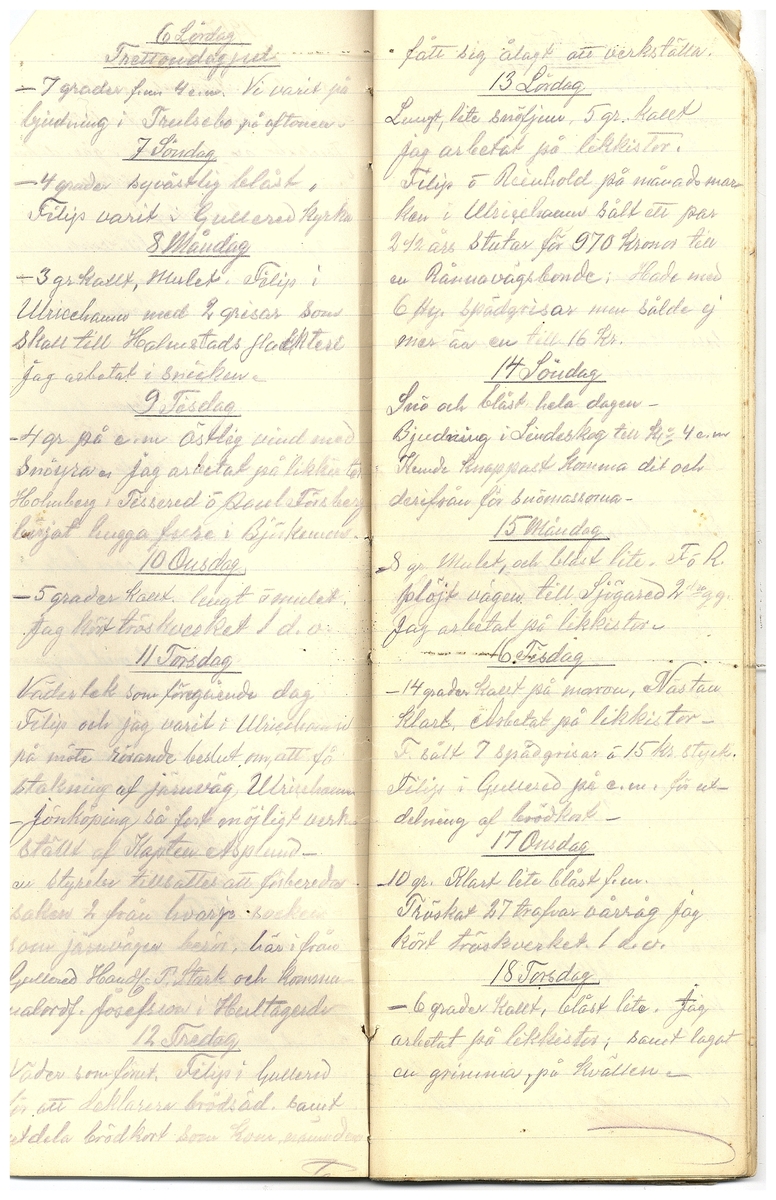 6 Lördag
Trettondagjul
- 7 grader f.m. 4 e.m. Vi varit på
bjudning i Trulsebo på aftonen.
7 Söndag
- 4 grader sydvästlig blåst.
Filip varit i Gullered Kyrka
8 Måndag
- 3 gr Kallt, Mulet. Filip i
Ulricehamn med 2 grisar som
skall till Halmstads slakteri
jag arbetat i snicken.
9 Tisdag
- 4 gr på e.m östlig vind med
snöyra. jag arbetat på likkistor
Holmberg i Tissered ö Paul Forsberg
börjat hugga fure i Björkemon.
10 Onsdag
- 5 grader kallt. lungt ö mulet.
Jag kört tröskverket 1 d.v.
11 Torsdag
Väderlek som föregående dag
Filip och jag varit i Ulricehamn
på möte rörande beslut om att få
stakning af järnväg Ulricehamn
- jönköping så fort möjligt verk-
ställt af Kapten Asplund -
en styrelse tillsattes att förbereda
saken 2 från hvarje socken
som järnvägen berör. härifrån
Gullered Handl. P. Stark och Kommu-
nalordf. Josefsson i Hultagerde
12 Fredag
Väder som förut. Filip i Gullered
för att deklarera brödsäd. samt
utdela brödkort som kom nämnden
fått sig ålagt att verkställa.
13 Lördag
Lungt, lite snöfjun, 5 gr. kallt
jag arbetat på likkistor.
Filip ö Reinhold på månadsmar-
ken i Ulricehamn sålt ett par
2 1/2 års stutar för 970 kronor till
en Rånnavägsbonde; Hade med
6 st. spädgrisar men sålde ej
mer än en till 16 kr.
14 Söndag
Snö och blåst hela dagen -
Bjudning i Lindeskog till Kl. 4 e.m
Kunde knappast komma dit och
derifrån för snömassorna -
15 Måndag
- 8 gr. Mulet, och blåst lite. F ö R.
plöjt vägen till Sjögared 2 gg.
Jag arbetat på likkistor -
16 Tisdag
- 14 grader kallt på morron, Nästan
klart. Arbetat på likkistor -
F. sålt 7 spädgrisar à 15 kr. styck.
Filip i Gullered på e.m. för ut-
delning af brödkort -
17 Onsdag
- 10 gr. Klart lite blåst f.m.
Tröskat 27 trafvar vårråg jag
kört tröskverket. 1 d.v.
18 Torsdag
- 6 grader kallt, blåst lite. Jag
arbetat på likkistor; samt lagat
en grimma, på kvällen -